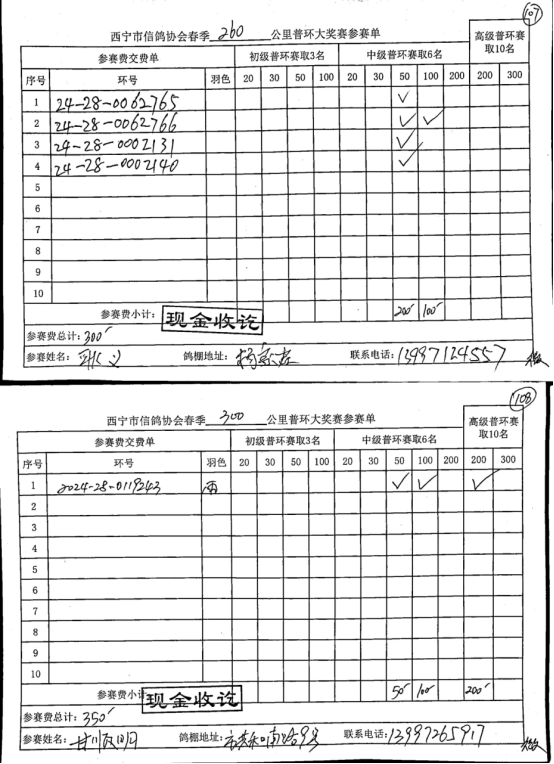 107
西宁市信鸽协会春季 260 公里普环大奖赛参赛单
参赛费交费单 初级普环赛取3名 中级普环赛取6名 高级普环赛取10名
序号 环号 羽色 20 30 50 100 20 30 50 100 200 200 300
1 24-28-0062765 ✓
2 24-28-0062766 ✓ ✓
3 24-28-0002131 ✓
4 24-28-0002140 ✓
5
6
7
8
9
10
参赛费小计: 现金收讫 200 100
参赛费总计: 300
参赛姓名: 鸽棚地址: 联系电话: 13997124557
108
西宁市信鸽协会春季 300 公里普环大奖赛参赛单
参赛费交费单 初级普环赛取3名 中级普环赛取6名 高级普环赛取10名
序号 环号 羽色 20 30 50 100 20 30 50 100 200 200 300
1 2024-28-0119243 雨 ✓ ✓ ✓
2
3
4
5
6
7
8
9
10
参赛费小计 现金收讫 50 100 200
参赛费总计: 350
参赛姓名: 鸽棚地址: 联系电话: 13997265917